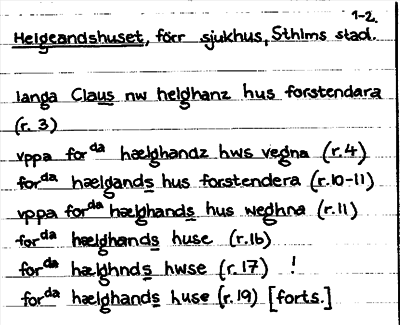 1-2.
Helgeandshuset, förr sjukhus, Sthlms stad.
langa Claus nw helghanz hus forstendara
(r. 3)
vppa for da hælghandz hws vegna (r. 4)
for da hælgands hus forstendera (r. 10-11)
vppa for da hælghands hus weghna (r. 11)
for da hælghands huse (r. 16)
for da hælghnds hwse (r. 17) !
for da hælghands huse (r. 19) [forts.]